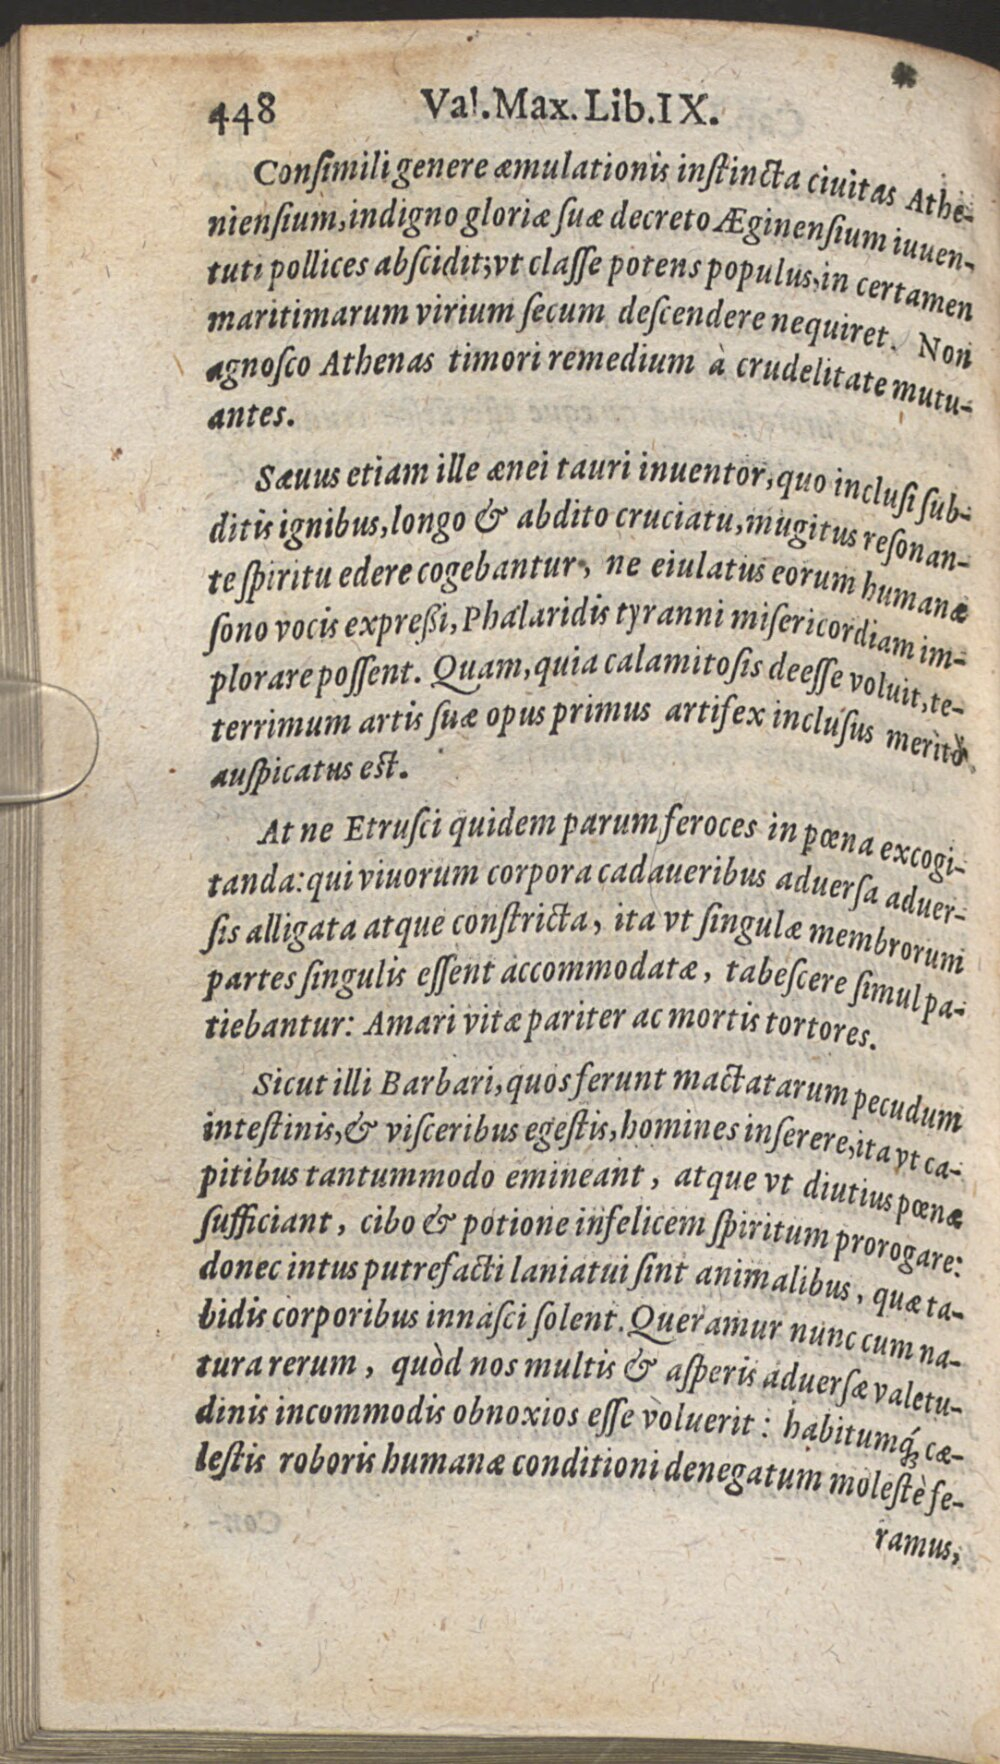 448 Val.Max.Lib.IX.
Conſimili genere æmulationis inſtincta ciuitas Athe-
nienſium, indigno gloriæ ſuæ decreto Æginenſium iuuen-
tuti pollices abſcidit, vt claſſe potens populus, in certamen
maritimarum virium ſecum deſcendere nequiret. Non
agnoſco Athenas timori remedium à crudelitate mutu-
antes.
Sæuus etiam ille ænei tauri inuentor, quo incluſi ſub-
ditis ignibus, longo & abdito cruciatu, mugitus reſonan-
te ſpiritu edere cogebantur, ne eiulatus eorum humanæ
ſono vocis expreßi, Phalaridis tyranni miſericordiam im-
plorare poſſent. Quam, quia calamitoſis deeſſe voluit, te-
terrimum artis ſuæ opus primus artifex incluſus meritò
auſpicatus est.
At ne Etruſci quidem parum feroces in pœna excogi-
tanda: qui viuorum corpora cadaueribus aduerſa aduer-
ſis alligata atque conſtricta, ita vt ſingulæ membrorum
partes ſingulis eſſent accommodatæ, tabeſcere ſimul pa-
tiebantur: Amari vitæ pariter ac mortis tortores.
Sicut illi Barbari, quos ferunt mactatarum pecudum
inteſtinis, & viſceribus egeſtis, homines inſerere, ita vt ca-
pitibus tantummodo emineant, atque vt diutius pœnæ
ſufficiant, cibo & potione infelicem ſpiritum prorogare:
donec intus putrefacti laniatui ſint animalibus, quæ ta-
bidis corporibus innaſci ſolent. Queramur nunc cum na-
tura rerum, quòd nos multis & aſperis aduerſæ valetu-
dinis incommodis obnoxios eſſe voluerit: habitumq́ꝫ cæ-
leſtis roboris humanæ conditioni denegatum moleſtè fe-
ramus,